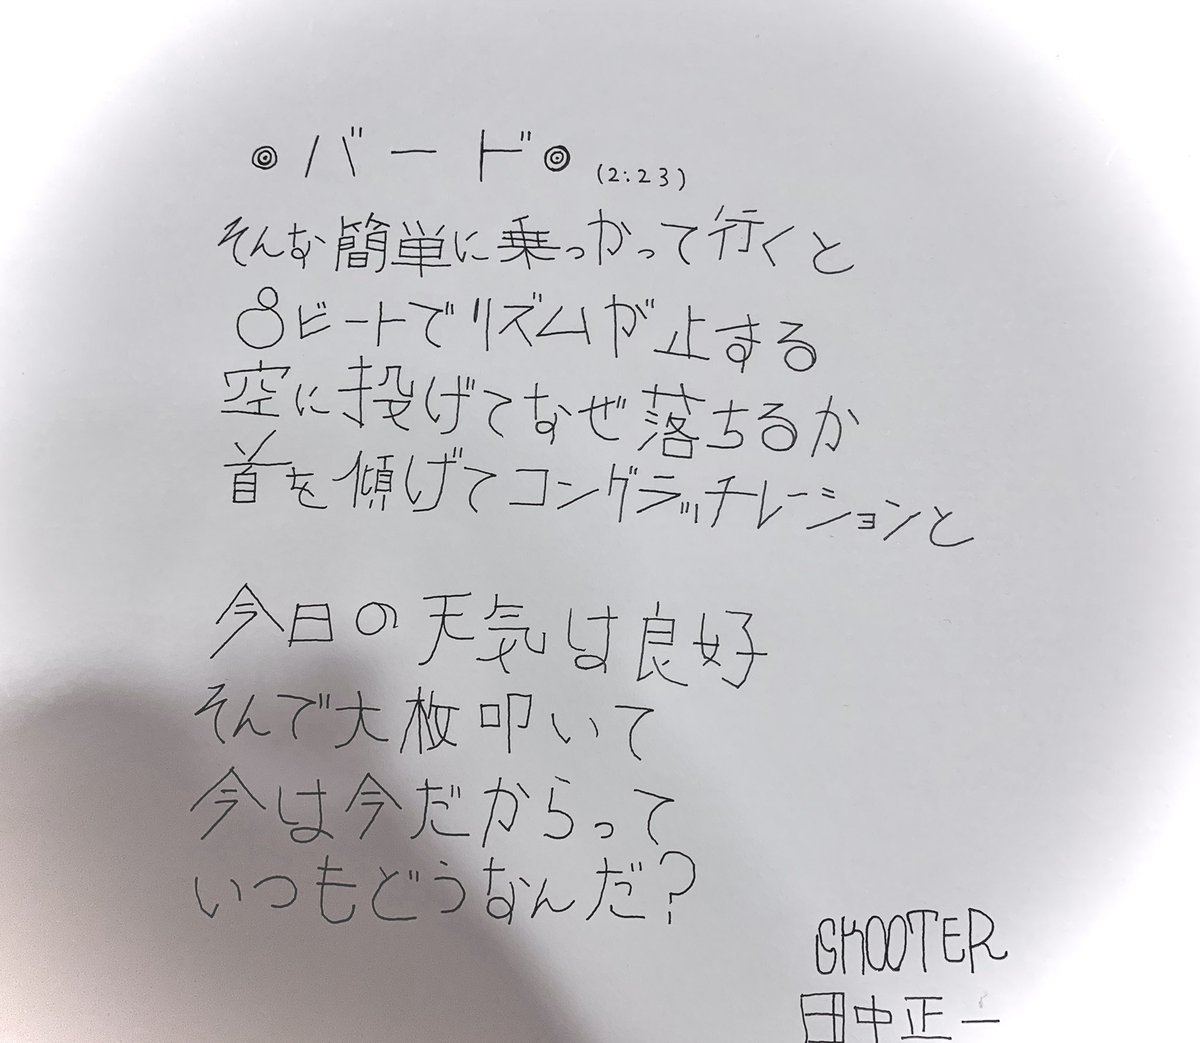 ◎バード◎ (2:23)
そんな簡単に乗っかって行くと
8ビートでリズムが止する
空に投げてなぜ落ちるか
首を傾げてコングラッチレーションと
今日の天気は良好
そんで大枚叩いて
今は今だからって
いつもどうなんだ?
SKOOTER
田中正一